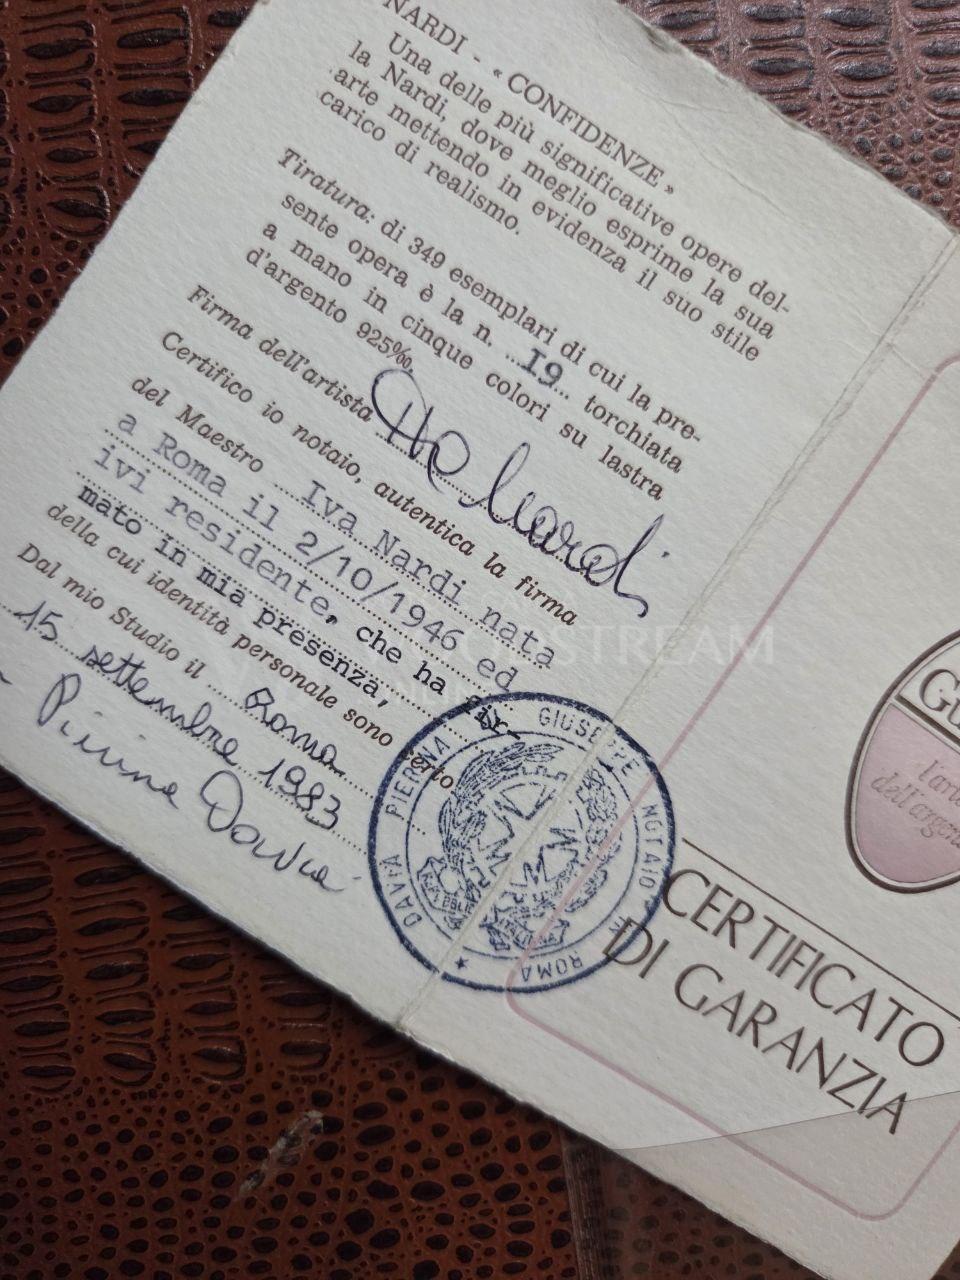 NARDI - « CONFIDENZE »
Una delle più significative opere del-
la Nardi, dove meglio esprime la sua
arte mettendo in evidenza il suo stile
carico di realismo.
Tiratura: di 349 esemplari di cui la pre-
sente opera è la n. I9 torchiata
a mano in cinque colori su lastra
d'argento 925‰.
Firma dell'artista
Nardi
Certifico io notaio, autentica la firma
del Maestro Iva Nardi nata
a Roma il 2/10/1946 ed
ivi residente, che ha fir-
mato in mia presenza,
della cui identità personale sono certo
Dal mio Studio il Roma
15 settembre 1983
DAVIA PIERINA GIUSEPPE NOTAIO
ROMA
REPUBBLICA ITALIANA
GU
l'arte
dell'argento
CERTIFICATO
DI GARANZIA